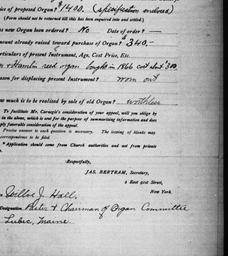 ice of proposed Organ? $1400. (specification enclosed)
(Form should not be returned till this has been enquired into and settled.)
as new Organ been ordered? No Date of order —
mount already raised toward purchase of Organ? $340—
articulars of present Instrument, Age, Cost Price, Etc.
n & Hamlin reed organ bought in 1866 cost about $
eason for displacing present Instrument? worn out
ow much is to be realized by sale of old Organ? worthless
To facilitate Mr. Carnegie's consideration of your appeal, will you oblige by
in the above, which is sent for the purpose of summarizing information and does
imply favorable consideration of the appeal.
Precise answer to each question is necessary. The leaving of blanks may
correspondence to be filed.
Application should come from Church authorities and not from private
Respectfully,
JAS. BERTRAM, Secretary,
2 East 91st Street,
New York.
J. Hall,
Designation. & Chairman of Organ Committee
Lubec, Maine